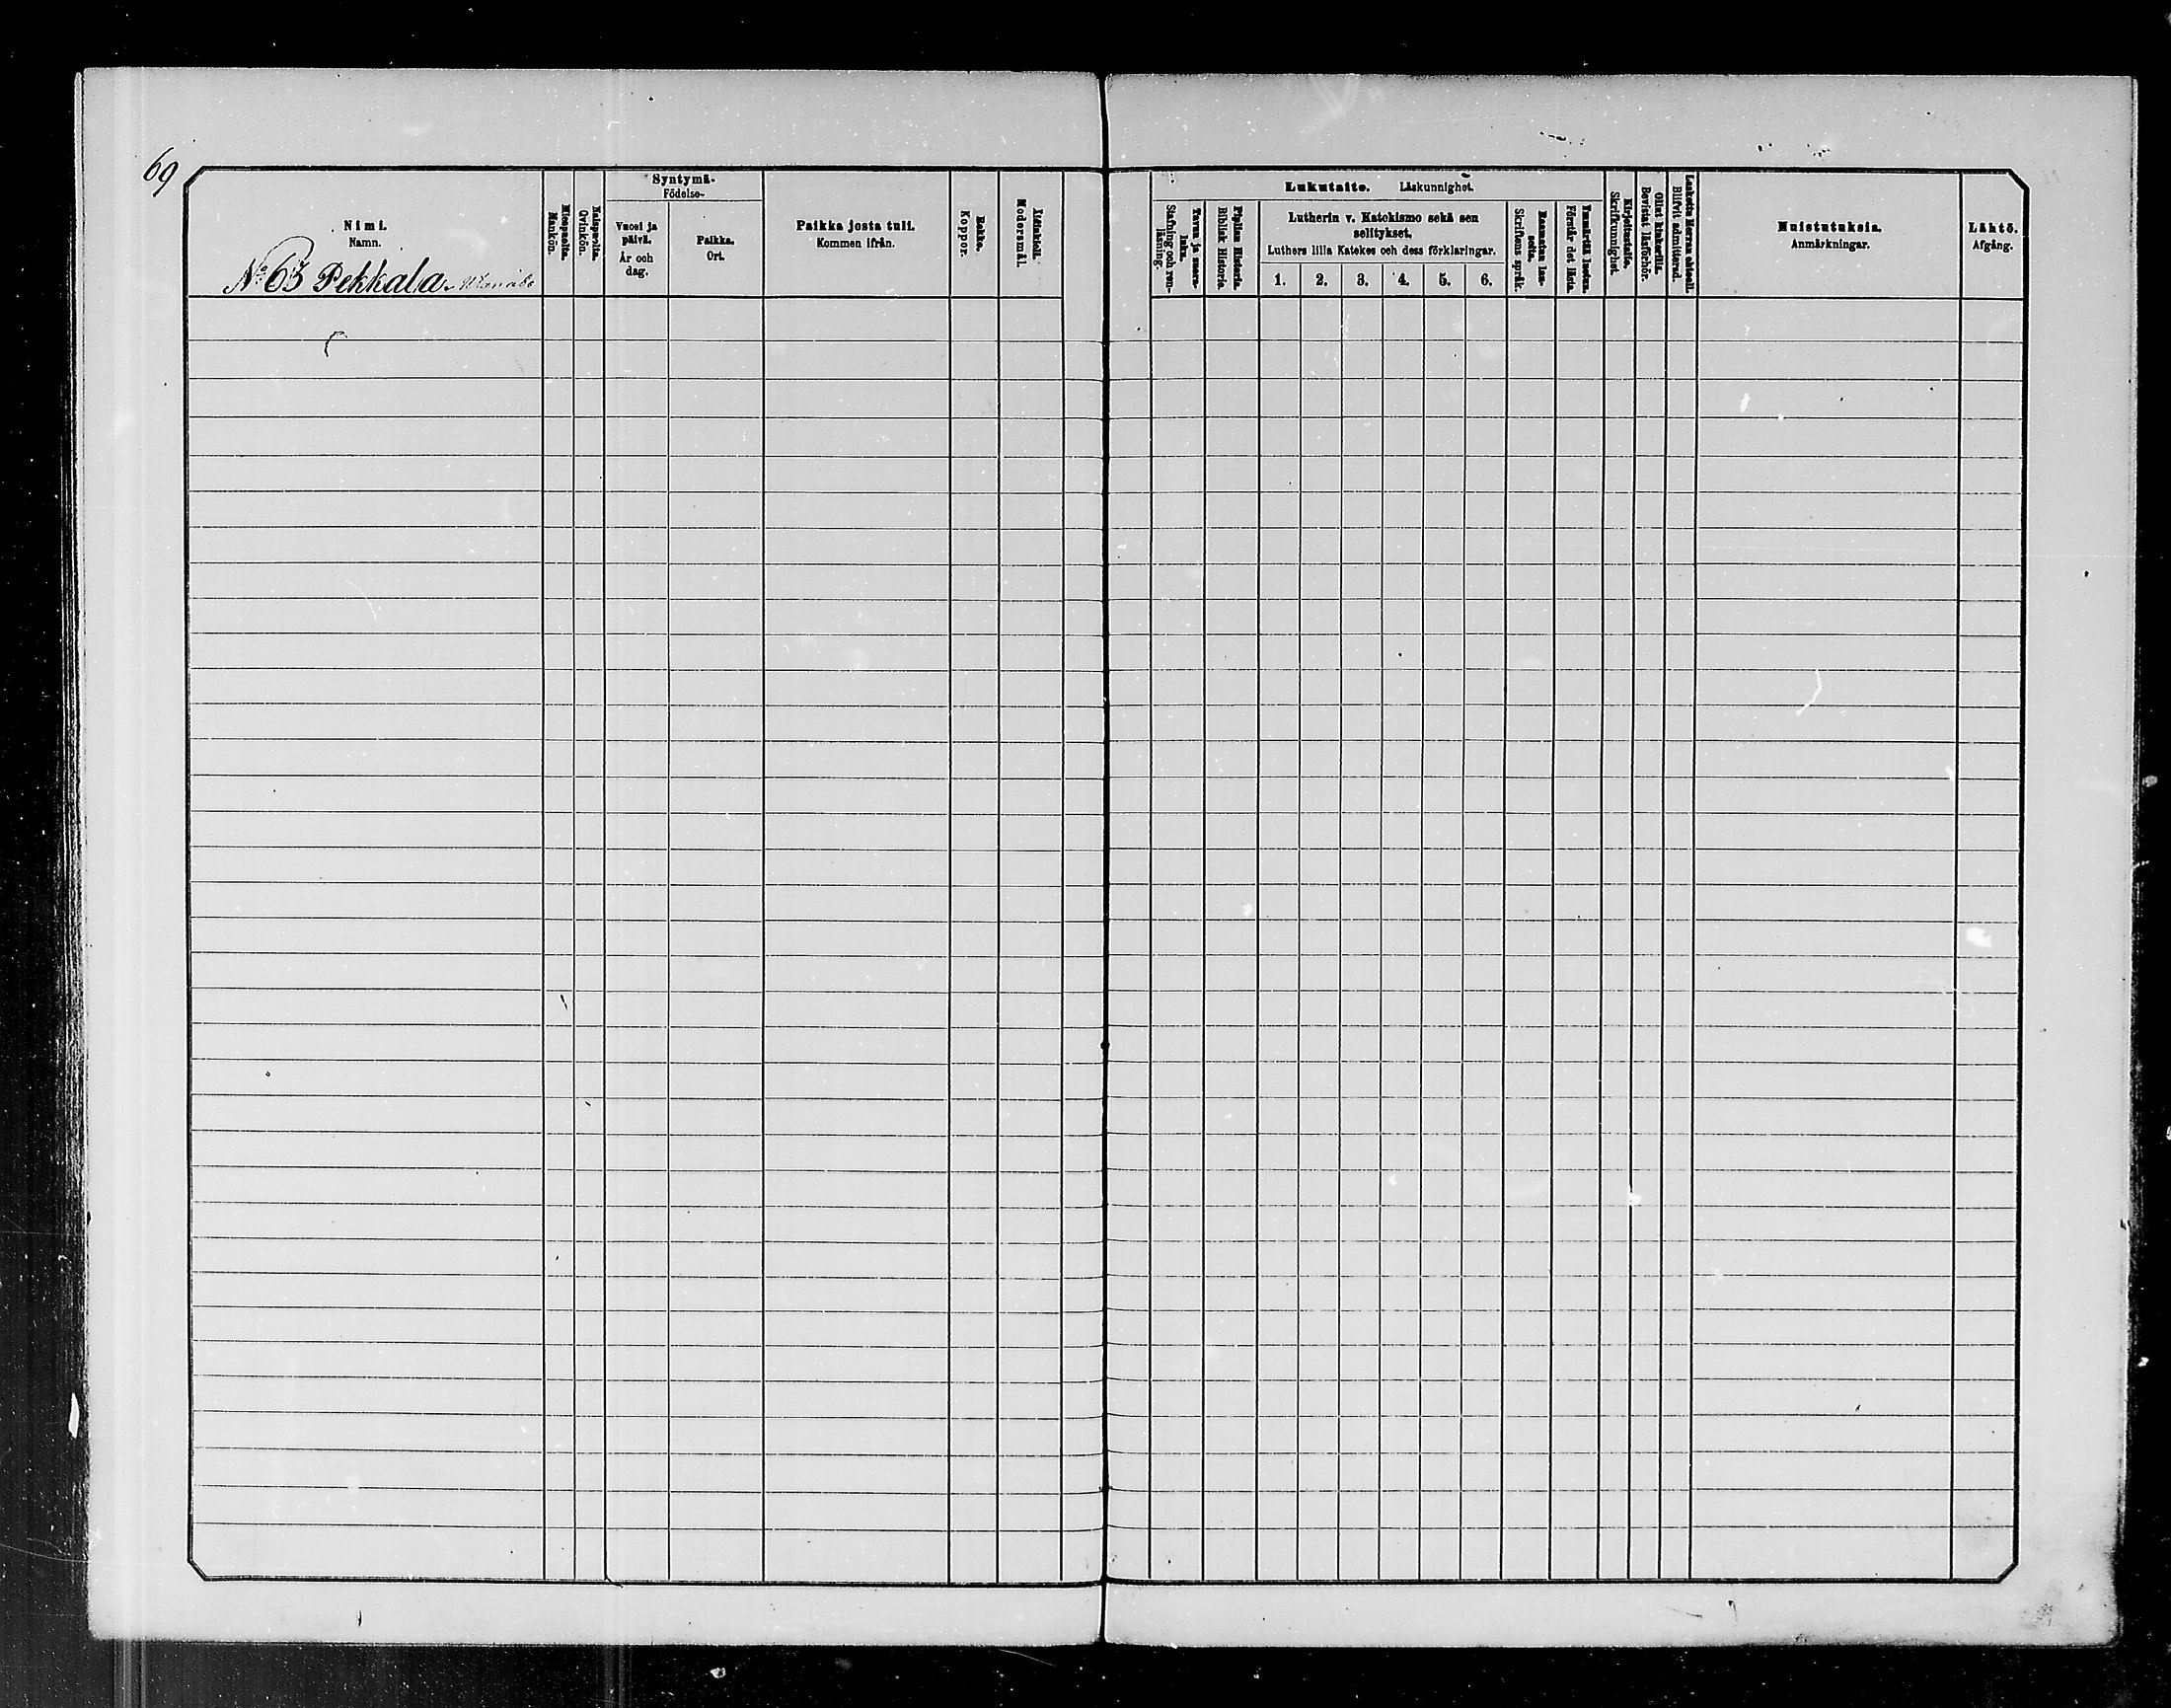 69
Nimi.
Namn.
№ 63 Pekkala
Miespuolia.
Mankön.
Naispuolia.
Qvinkön.
Syntymä-
Födelse-
Vuosi ja
päivä.
År och
dag.
Paikka.
Ort.
Paikka josta tuli.
Kommen ifrån.
Rokko.
Koppor.
Äidinkieli.
Modersmål.
Lukutaito. Läskunnighet.
Tavuu ja suora-
luku.
Stafning och ren-
läsning.
Piplian Historia.
Biblisk Historie.
Lutherin v. Katekismo sekä sen
selitykset.
Luthers lilla Katekes och dess förklaringar.
1. 2. 3. 4. 5. 6.
Raamatun lau-
seita.
Skriftens språk.
Ymmärtää luetun.
Förstår det lästa.
Kirjoitustaito.
Skrifkunnighet.
Ollut kinkerillä.
Bevistat läsförhör.
Laskettu Herran ehtooll.
Blifvit admitterad.
Muistutuksia.
Anmärkningar.
Lähtö.
Afgång.